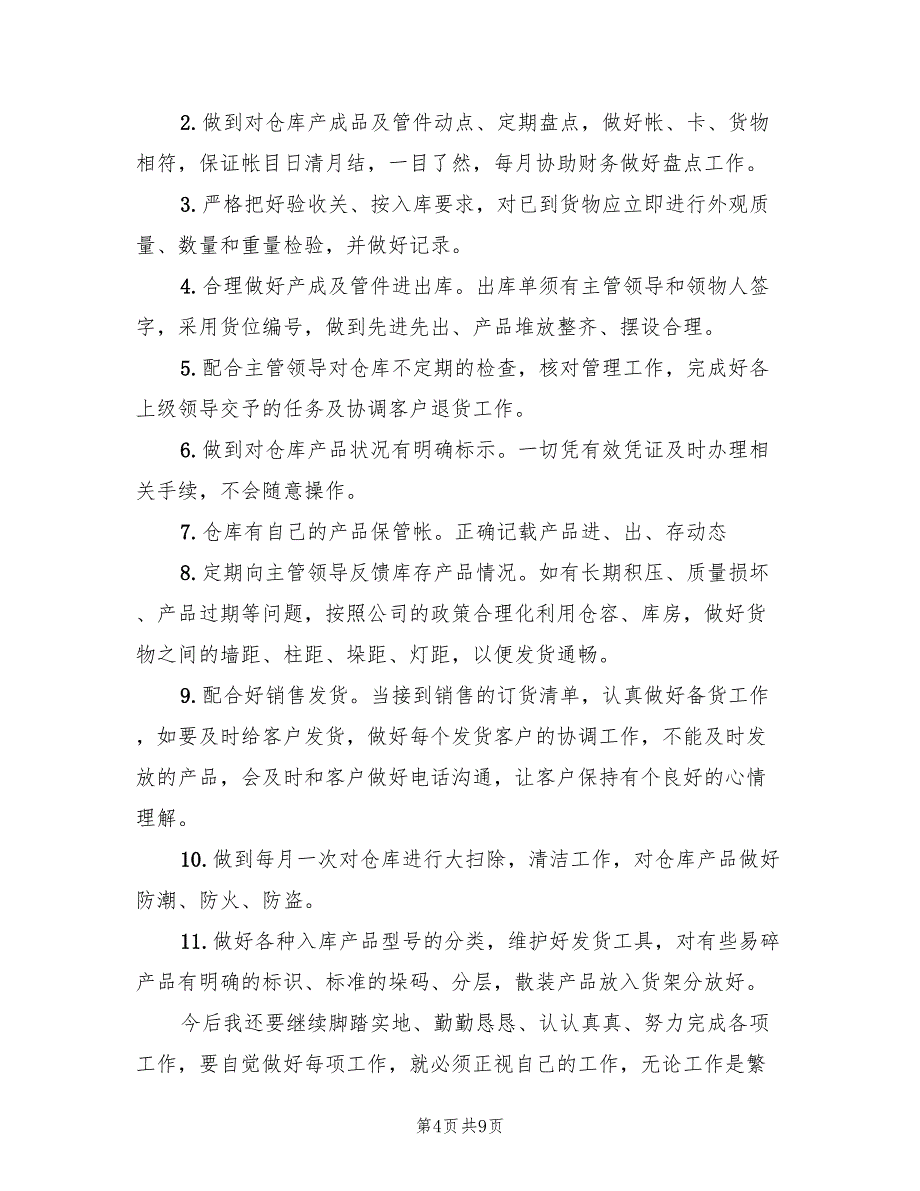 2.做到对仓库产成品及管件动点、定期盘点，做好帐、卡、货物
相符，保证帐目日清月结，一目了然，每月协助财务做好盘点工作。
3.严格把好验收关、按入库要求，对已到货物应立即进行外观质
量、数量和重量检验，并做好记录。
4.合理做好产成及管件进出库。出库单须有主管领导和领物人签
字，采用货位编号，做到先进先出、产品堆放整齐、摆设合理。
5.配合主管领导对仓库不定期的检查，核对管理工作，完成好各
上级领导交予的任务及协调客户退货工作。
6.做到对仓库产品状况有明确标示。一切凭有效凭证及时办理相
关手续，不会随意操作。
7.仓库有自己的产品保管帐。正确记载产品进、出、存动态
8.定期向主管领导反馈库存产品情况。如有长期积压、质量损坏
、产品过期等问题，按照公司的政策合理化利用仓容、库房，做好货
物之间的墙距、柱距、垛距、灯距，以便发货通畅。
9.配合好销售发货。当接到销售的订货清单，认真做好备货工作
，如要及时给客户发货，做好每个发货客户的协调工作，不能及时发
放的产品，会及时和客户做好电话沟通，让客户保持有个良好的心情
理解。
10.做到每月一次对仓库进行大扫除，清洁工作，对仓库产品做好
防潮、防火、防盗。
11.做好各种入库产品型号的分类，维护好发货工具，对有些易碎
产品有明确的标识、标准的垛码、分层，散装产品放入货架分放好。
今后我还要继续脚踏实地、勤勤恳恳、认认真真、努力完成各项
工作，要自觉做好每项工作，就必须正视自己的工作，无论工作是繁
第4页共9页